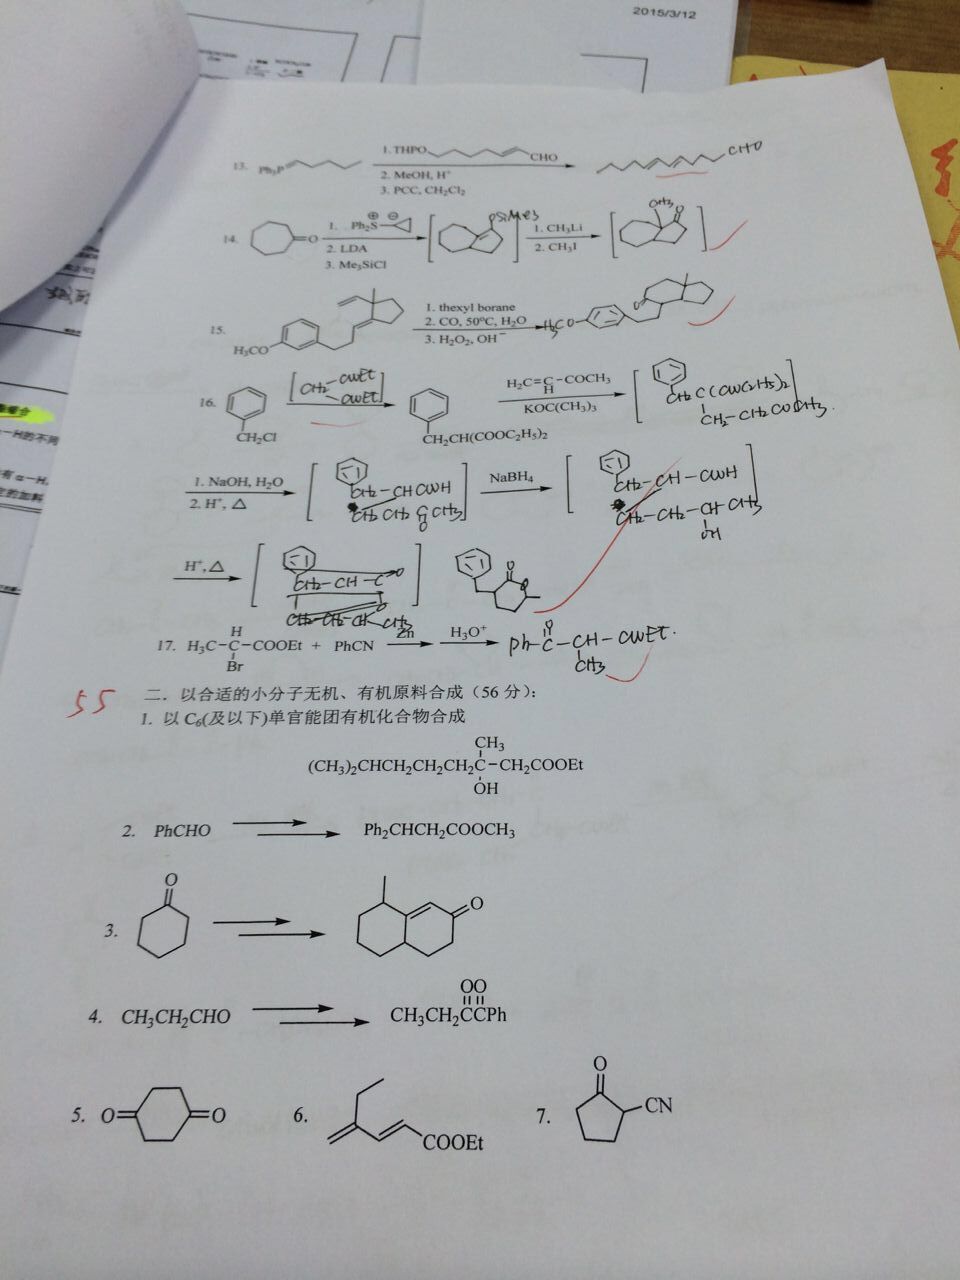 2015/3/12
13. Ph₃P 1. THPO CHO CHO
2. MeOH, H⁺
3. PCC, CH₂Cl₂
14. O 1. Ph₂S ⊕ ⊖ OSiMe3 1. CH₃Li CH3 O
2. LDA 2. CH₃I
3. Me₃SiCl
15. H₃CO 1. thexyl borane H3CO O
2. CO, 50°C, H₂O
3. H₂O₂, OH⁻
16. CH₂Cl CH2 COOEt COOEt CH₂CH(COOC₂H₅)₂ H₂C=C-COCH₃ H KOC(CH₃)₃ CH2 C(COOC2H5)2
CH2-CH2COCH3
1. NaOH, H₂O CH2-CHCOOH NaBH₄ CH2-CH-COOH
2. H⁺, △ CH2CH2CCH3 O CH2-CH2-CH CH3 OH
H⁺, △ CH2-CH-C O O
CH2-CH2-CH-CH3
17. H₃C-C-COOEt + PhCN Zn H₃O⁺ Ph-C-CH-COOEt.
H Br O CH3
55
二．以合适的小分子无机、有机原料合成（56 分）：
1. 以 C₆(及以下)单官能团有机化合物合成
CH₃
(CH₃)₂CHCH₂CH₂CH₂C-CH₂COOEt
OH
2. PhCHO Ph₂CHCH₂COOCH₃
3. O O
4. CH₃CH₂CHO CH₃CH₂CCPh
OO
5. O= =O 6. COOEt 7. O CN